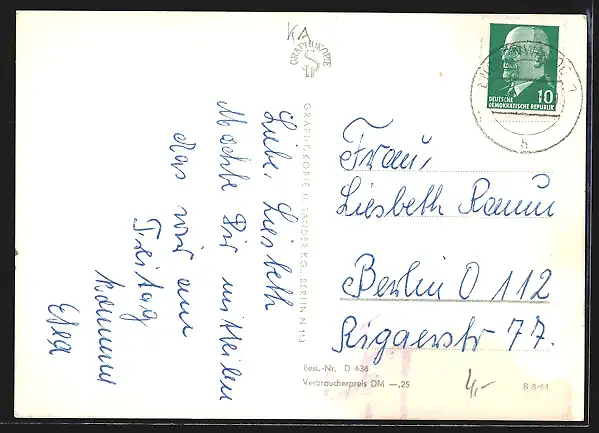 KA
GRAPHOKOPIE
DEUTSCHE
DEMOKRATISCHE REPUBLIK
10
Liebe Liesbeth
Möchte Dir mitteilen
das wir am
Freitag
kommen
GRAPHOKOPIE H. SANDER KG., BERLIN N 113
Frau,
Liesbeth Ramm
Berlin O 112
Rigaerstr 77.
Best.-Nr. D 636
Verbraucherpreis DM —,25
4,-
B 8/64